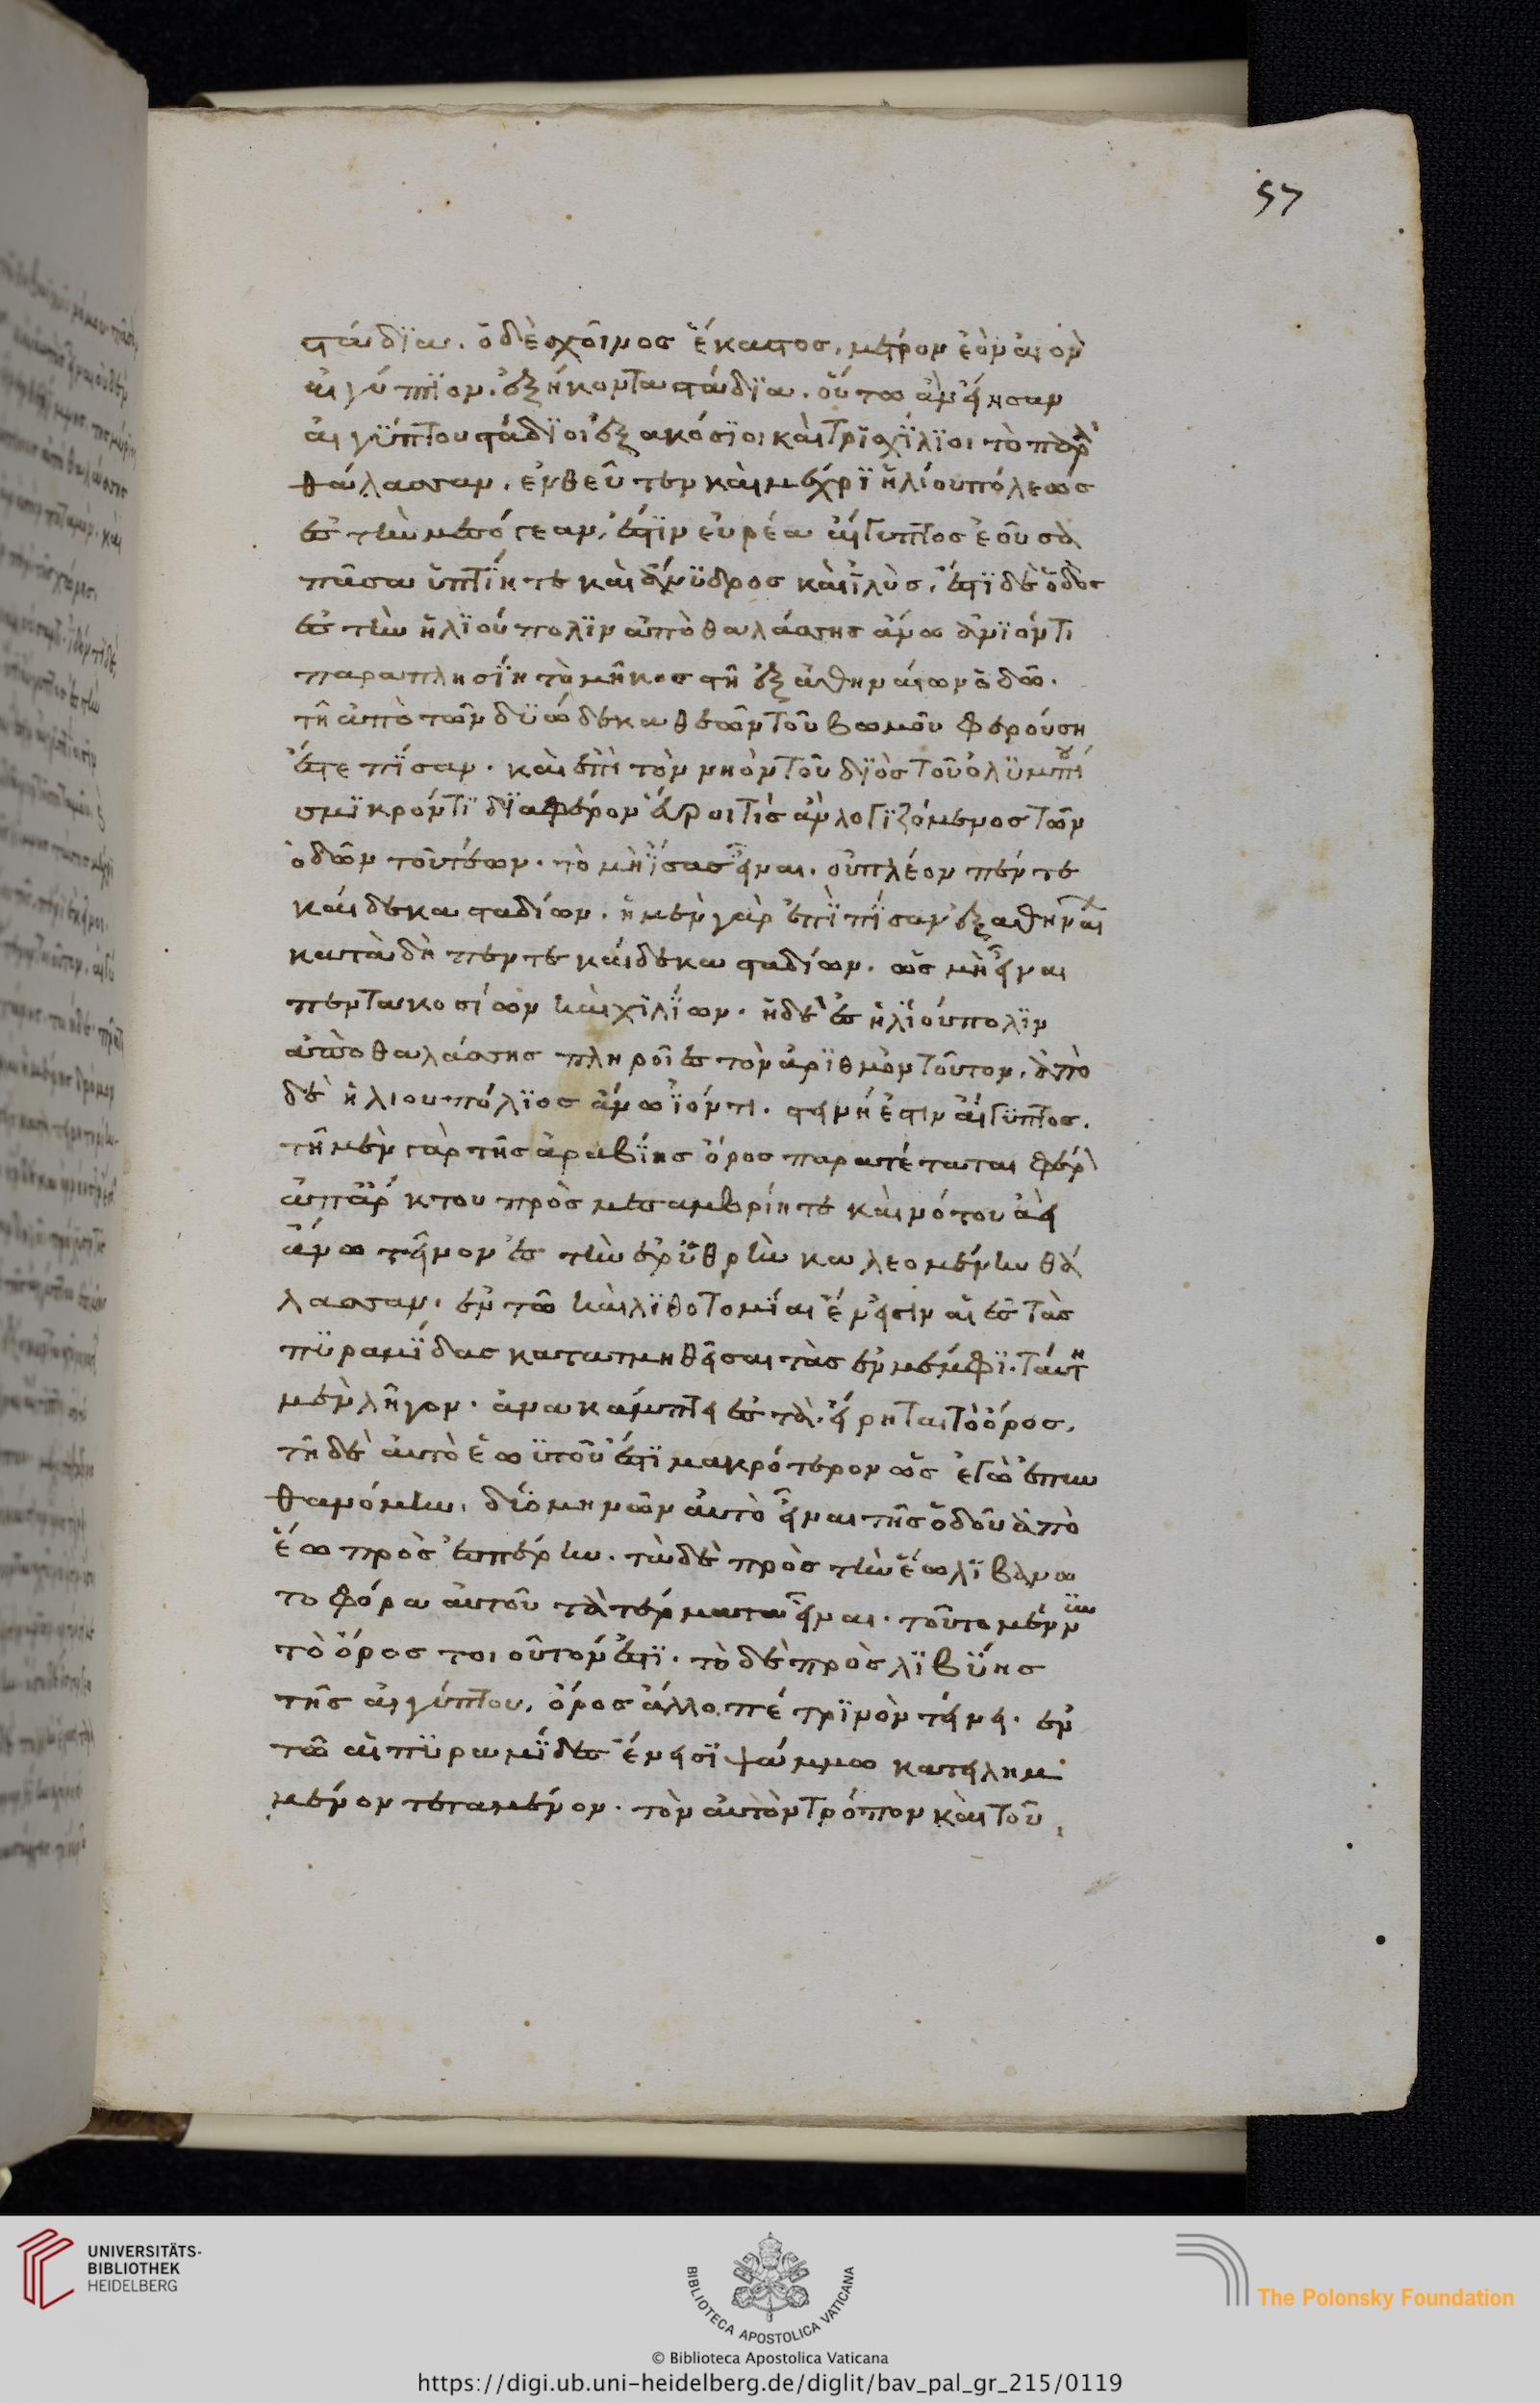 57
στάδια. ὁ δὲ σχοῖνος ἕκαστος, μέτρον ἐὸν αιον
αἰγύπτιον. ἑξήκοντα στάδια. οὕτω ἂν εἴησαν
αἰγύπτου στάδιοι ἑξακόσιοι καὶ τρισχίλιοι τὸ παρ
θάλασσαν. ἐνθεῦτεν καὶ μέχρι ἡλίου πόλεως
ἐς τὴν μεσόγεαν, ἐστὶν εὐρέα αἴγυπτος ἐοῦσα
πᾶσα ὑπτίη τε καὶ ἄνυδρος καὶ ἰλὺς. ἔστι δὲ ὁδὸς
ἐς τὴν ἡλίου πόλιν ἀπὸ θαλάσσης ἄνω ἀνιόντι
παραπλησίη τὸ μῆκος τῆ ἐξ ἀθηνάων ὁδῶ.
τῆ ἀπὸ τῶν δυώδεκα θεῶν τοῦ βωμοῦ φερούση
ἔς τε πίσαν. καὶ ἐπὶ τὸν νηὸν τοῦ διὸς τοῦ ὀλυμπίου
σμικρόν τι διαφέρον εὕροι τις ἀνλογιζόμενος τῶν
ὁδῶν τουτέων. τὸ μὴ ἴσας εἶναι. οὐ πλέον πέντε
καίδεκα σταδίων. ἡ μὲν γὰρ ἐπὶ πίσαν ἐξ ἀθηναι
καταδὴ πεντεκαίδεκα σταδίων. ὡς μὴ εἶναι
πεντακοσίων καὶ χιλίων. ἡ δὲ ἐς ἡλίου πολιν
ἀπὸ θαλάσσης πληροῖ ἐς τὸν ἀριθμὸν τοῦτον. ἀπὸ
δὲ ἡλιουπόλιος ἄνω ἰόντι. στεινή ἐστιν αἴγυπτος.
τῆ μὲν γὰρ τῆς ἀραβίης ὄρος παρατέταται φέρ
ἀπ ἄρκτου πρὸς μεσαμβρίης τε καὶ νότου ἀεὶ
ἄνω τεῖνον ἐς τὴν ἐρυθρὴν καλεομένην θά
λασσαν. ἐν τῶ καὶ λιθοτομίαι ἔνεισιν αἱ ἐς τὰς
πυραμίδας κατατμηθεῖσαι τὰς ἐν μέμφι. ταύτη
μὲν λῆγον. ἀνακάμπτει ἐς τὰ εἴρηται τὸ ὄρος.
τῆ δὲ αὐτὸ ἑωυτοῦ ἐστι μακρότερον ὡς ἐγὼ ἐπυν
θανόμην. δύο μηνῶν αὐτὸ εἶναι τῆς ὁδοῦ ἀπὸ
ἕω πρὸς ἑσπέρην. τὰ δὲ πρὸς τὴν ἕω λιβανω
τοφόρα αὐτοῦ τὰ τέρματα εἶναι. τοῦτο μέν νυν
τὸ ὄρος τοιοῦτόν ἐστι. τὸ δὲ πρὸς λιβύης
τῆς αἰγύπτου, ὄρος ἄλλο πέτρινον τείνει. ἐν
τῶ αἱ πυραμίδες ἔνεισι ψάμμω κατειλημ
μένον τεταμένον. τὸν αὐτὸν τρόπον καὶ τοῦ
UNIVERSITÄTS-
BIBLIOTHEK
HEIDELBERG
BIBLIOTECA APOSTOLICA VATICANA
The Polonsky Foundation
© Biblioteca Apostolica Vaticana
https://digi.ub.uni-heidelberg.de/diglit/bav_pal_gr_215/0119